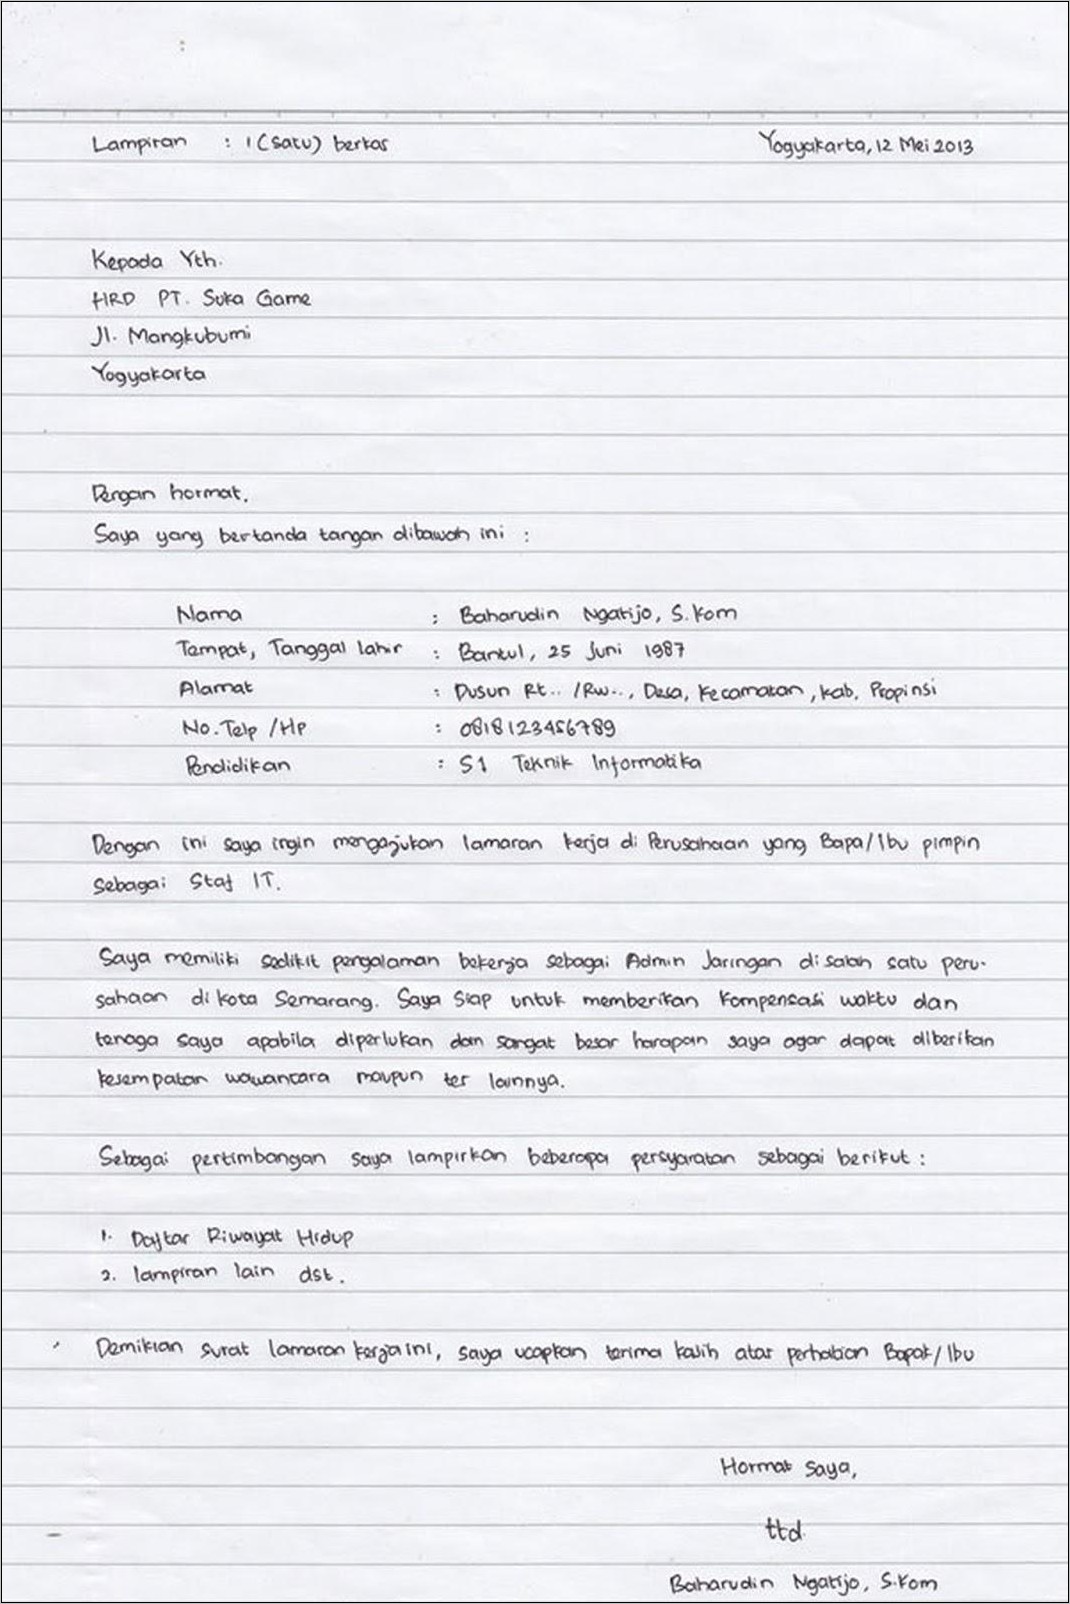 Lampiran : 1 (Satu) berkas Yogyakarta, 12 Mei 2013
Kepada Yth.
HRD PT. Suka Game
Jl. Mangkubumi
Yogyakarta
Dengan hormat.
Saya yang bertanda tangan dibawah ini :
Nama : Baharudin Ngatijo, S.Kom
Tempat, Tanggal lahir : Bantul, 25 Juni 1987
Alamat : Dusun Rt.. /Rw.., Desa, Kecamatan, Kab. Propinsi
No. Telp /Hp : 0818123456789
Pendidikan : S1 Teknik Informatika
Dengan ini saya ingin mengajukan lamaran kerja di Perusahaan yang Bapa/Ibu pimpin
Sebagai Staf IT.
Saya memiliki sedikit pengalaman bekerja sebagai Admin Jaringan di salah satu peru-
sahaan di kota Semarang. Saya Siap untuk memberikan kompensasi waktu dan
tenaga saya apabila diperlukan dan sangat besar harapan saya agar dapat diberikan
kesempatan wawancara maupun tes lainnya.
Sebagai pertimbangan saya lampirkan beberapa persyaratan sebagai berikut :
1. Daftar Riwayat Hidup
2. lampiran lain dst.
Demikian surat lamaran kerja ini, saya ucapkan terima kasih atas perhatian Bapak/Ibu
Hormat Saya,
ttd
Baharudin Ngatijo, S.Kom